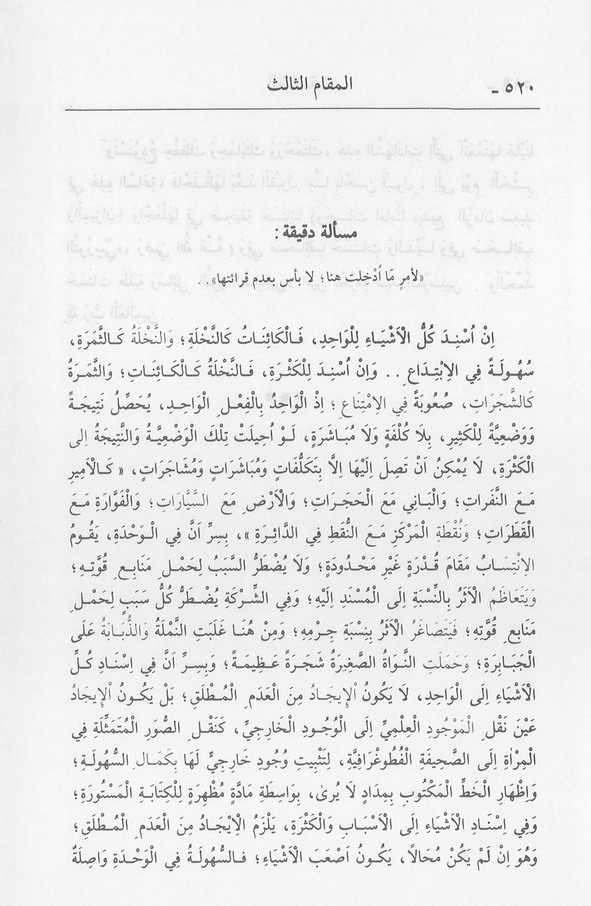 ٥٢٠ - المقام الثالث
مسألة دقيقة :
«لأمرٍ مَا أدْخِلت هنا؛ لا بأس بعدم قرائتها»..
اِنْ اُسْنِدَ كُلُّ الْاَشْيَاءِ لِلْوَاحِدِ، فَالْكَائِنَاتُ كَالنَّخْلَةِ؛ وَالنَّخْلَةُ كَالثَّمَرَةِ،
سُهُولَةً فِي الْاِبْتِدَاعِ .. وَاِنْ اُسْنِدَ لِلْكَثْرَةِ، فَالنَّخْلَةُ كَالْكَائِنَاتِ؛ وَالثَّمْرَةُ
كَالشَّجَرَاتِ، صُعُوبَةً فِي الْاِمْتِنَاعِ؛ اِذْ الْوَاحِدُ بِالْفِعْلِ الْوَاحِدِ، يُحَصِّلُ نَتِيجَةً
وَوَضْعِيَّةً لِلْكَثِيرِ، بِلَا كُلْفَةٍ وَلَا مُبَاشَرَةٍ، لَوْ اُحِيلَتْ تِلْكَ الْوَضْعِيَّةُ وَالنَّتِيجَةُ اِلَى
الْكَثْرَةِ، لَا يُمْكِنُ اَنْ تَصِلَ اِلَيْهَا اِلَّا بِتَكَلُّفَاتٍ وَمُبَاشَرَاتٍ وَمُشَاجَرَاتٍ، « كَالْاَمِيرِ
مَعَ النَّفَرَاتِ؛ وَالْبَانِي مَعَ الْحَجَرَاتِ؛ وَالْاَرْضِ مَعَ السَّيَّارَاتِ؛ وَالْفَوَّارَةِ مَعَ
الْقَطَرَاتِ؛ وَنُقْطَةِ الْمَرْكَزِ مَعَ النُّقَطِ فِي الدَّائِرَةِ »، بِسِرِّ اَنَّ فِي الْوَحْدَةِ، يَقُومُ
الْاِنْتِسَابُ مَقَامَ قُدْرَةٍ غَيْرِ مَحْدُودَةٍ؛ وَلَا يُضْطَرُّ السَّبَبُ لِحَمْلِ مَنَابِعِ قُوَّتِهِ؛
وَيَتَعَاظَمُ الْاَثَرُ بِالنِّسْبَةِ اِلَى الْمُسْنَدِ اِلَيْهِ؛ وَفِي الشِّرْكَةِ يُضْطَرُّ كُلُّ سَبَبٍ لِحَمْلِ
مَنَابِعِ قُوَّتِهِ؛ فَيَتَصَاغَرُ الْاَثَرُ بِنِسْبَةِ جِرْمِهِ؛ وَمِنْ هُنَا غَلَبَتِ النَّمْلَةُ وَالذُّبَابَةُ عَلَى
الْجَبَابِرَةِ؛ وَحَمَلَتِ النَّوَاةُ الصَّغِيرَةُ شَجَرَةً عَظِيمَةً؛ وَبِسِرِّ اَنَّ فِي اِسْنَادِ كُلِّ
الْاَشْيَاءِ اِلَى الْوَاحِدِ، لَا يَكُونُ الْاِيجَادُ مِنَ الْعَدَمِ الْمُطْلَقِ؛ بَلْ يَكُونُ الْاِيجَادُ
عَيْنَ نَقْلِ الْمَوْجُودِ الْعِلْمِيِّ اِلَى الْوُجُودِ الْخَارِجِيِّ، كَنَقْلِ الصُّوَرِ الْمُتَمَثِّلَةِ فِي
الْمِرْاٰةِ اِلَى الصَّحِيفَةِ الْفُطُوغْرَافِيَّةِ، لِتَثْبِيتِ وُجُودٍ خَارِجِيٍّ لَهَا بِكَمَالِ السُّهُولَةِ؛
وَاِظْهَارِ الْخَطِّ الْمَكْتُوبِ بِمِدَادٍ لَا يُرىٰ، بِوَاسِطَةِ مَادَّةٍ مُظْهِرَةٍ لِلْكِتَابَةِ الْمَسْتُورَةِ؛
وَفِي اِسْنَادِ الْاَشْيَاءِ اِلَى الْاَسْبَابِ وَالْكَثْرَةِ، يَلْزَمُ الْاِيجَادُ مِنَ الْعَدَمِ الْمُطْلَقِ؛
وَهُوَ اِنْ لَمْ يَكُنْ مُحَالًا، يَكُونُ اَصْعَبَ الْاَشْيَاءِ؛ فَالسُّهُولَةُ فِي الْوَحْدَةِ وَاصِلَةٌ